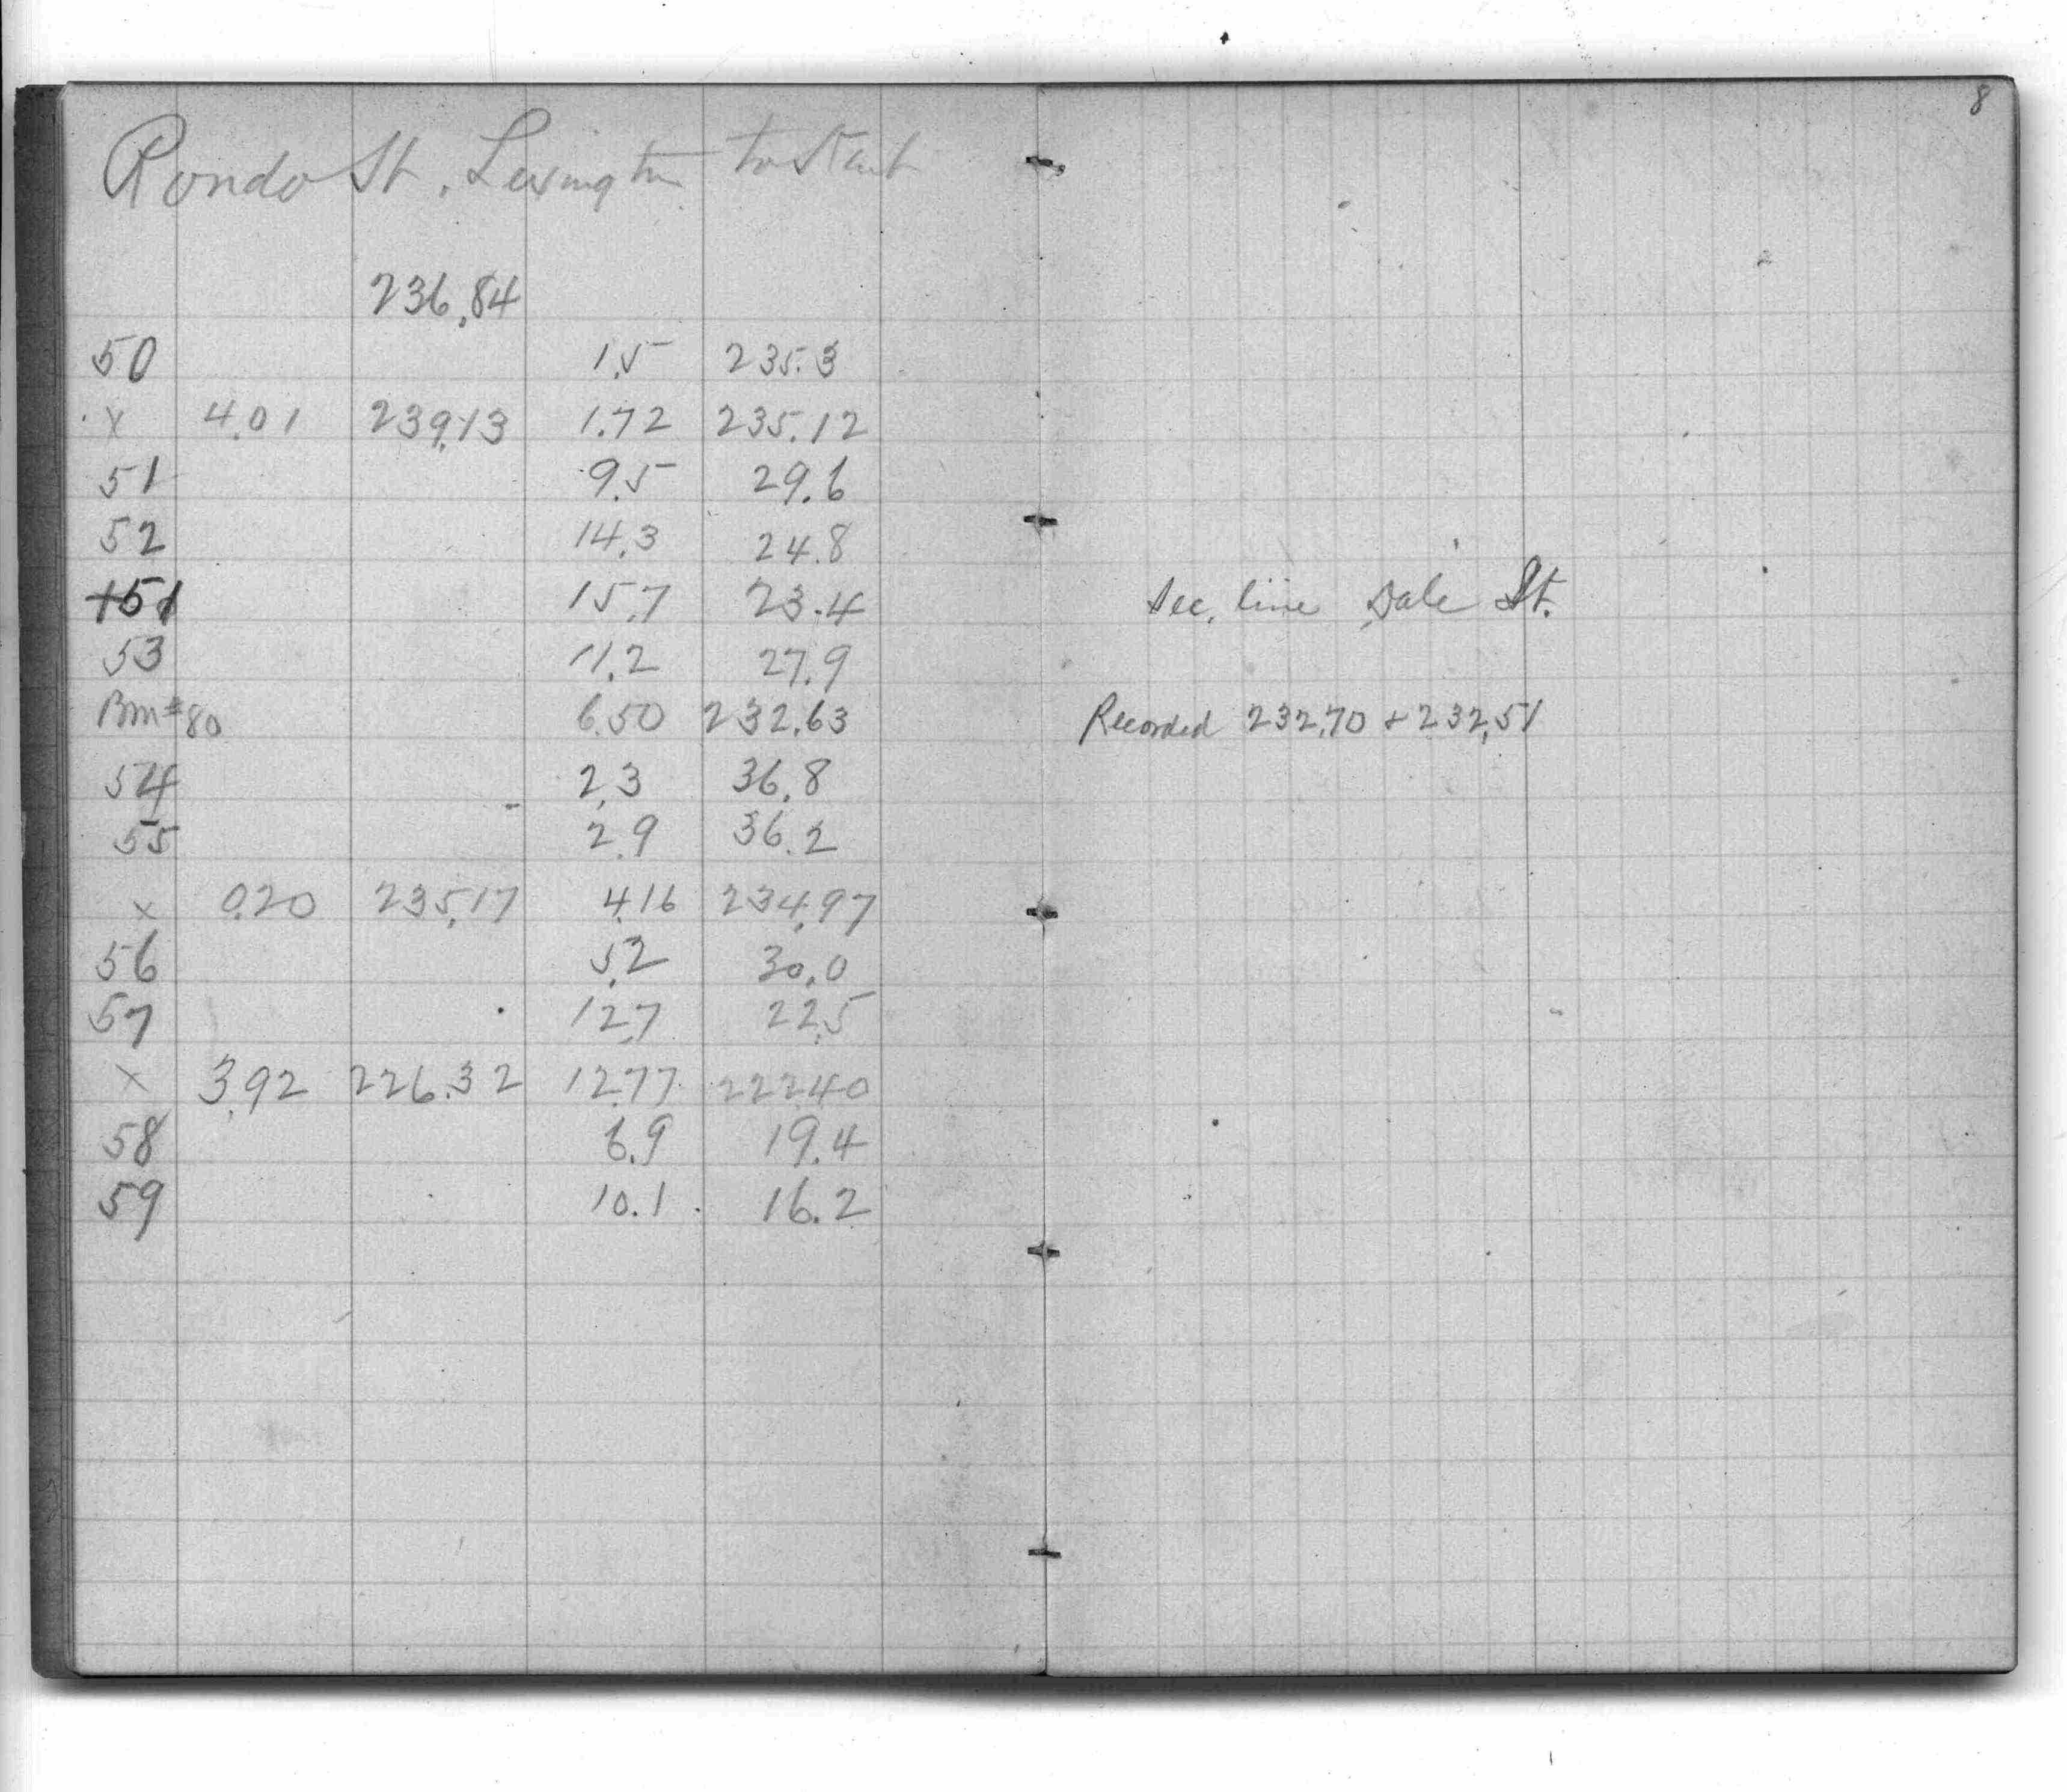 8
Rondo St. Lexington to Start
236.84
50 1.5 235.3
x 4.01 239.13 1.72 235.12
51 9.5 29.6
52 14.3 24.8
+51 15.7 23.4 Sec. line Dale St.
53 11.2 27.9
Bm #80 6.50 232.63 Recorded 232.70 + 232.51
54 2.3 36.8
55 2.9 36.2
x 0.20 235.17 4.16 234.97
56 5.2 30.0
57 12.7 22.5
x 3.92 226.32 12.77 222.40
58 6.9 19.4
59 10.1 16.2